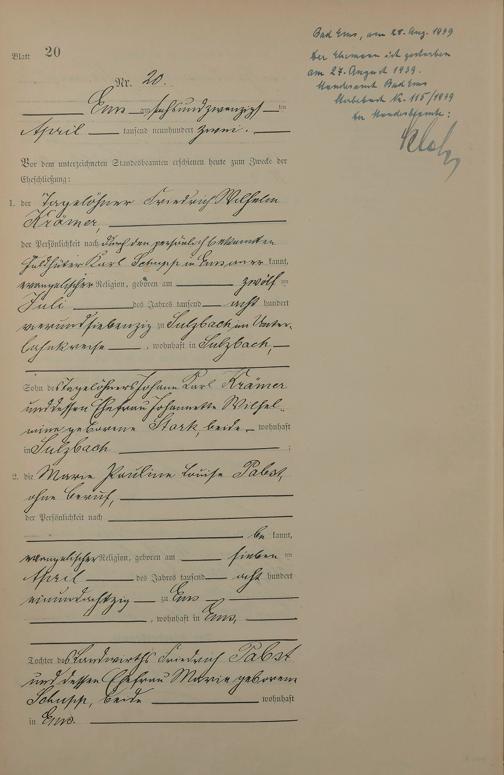 Blatt 20
Bad Ems, am 28. Aug. 1939
Der Ehemann ist gestorben
am 27. August 1939.
Standesamt Bad Ems
Sterbebuch Nr. 115/1939
Der Standesbeamte:
Nr. 20.
Ems am sechsundzwanzigsten
April tausend neunhundert zwei.
Vor dem unterzeichneten Standesbeamten erschienen heute zum Zwecke der
Eheschließung:
1. der Tagelöhner Friedrich Wilhelm
Krämer,
der Persönlichkeit nach durch den persönlich bekannten
Feldhüter Karl Schupp in Ems anerkannt,
evangelischer Religion, geboren am zwölften
Juli des Jahres tausend acht hundert
vierundsiebenzig zu Sulzbach im Unter-
lahnkreise, wohnhaft in Sulzbach,
Sohn des Tagelöhners Johann Karl Krämer
und dessen Ehefrau Johannette Wilhel-
mine geborene Stark, beide wohnhaft
in Sulzbach ;
2. die Marie Pauline Louise Pabst,
ohne Beruf,
der Persönlichkeit nach
be kannt,
evangelischer Religion, geboren am siebenten
April des Jahres tausend acht hundert
einundachtzig zu Ems
, wohnhaft in Ems,
Tochter des Landwirths Friedrich Pabst
und dessen Ehefrau Marie geborenen
Schupp, beide wohnhaft
in Ems.